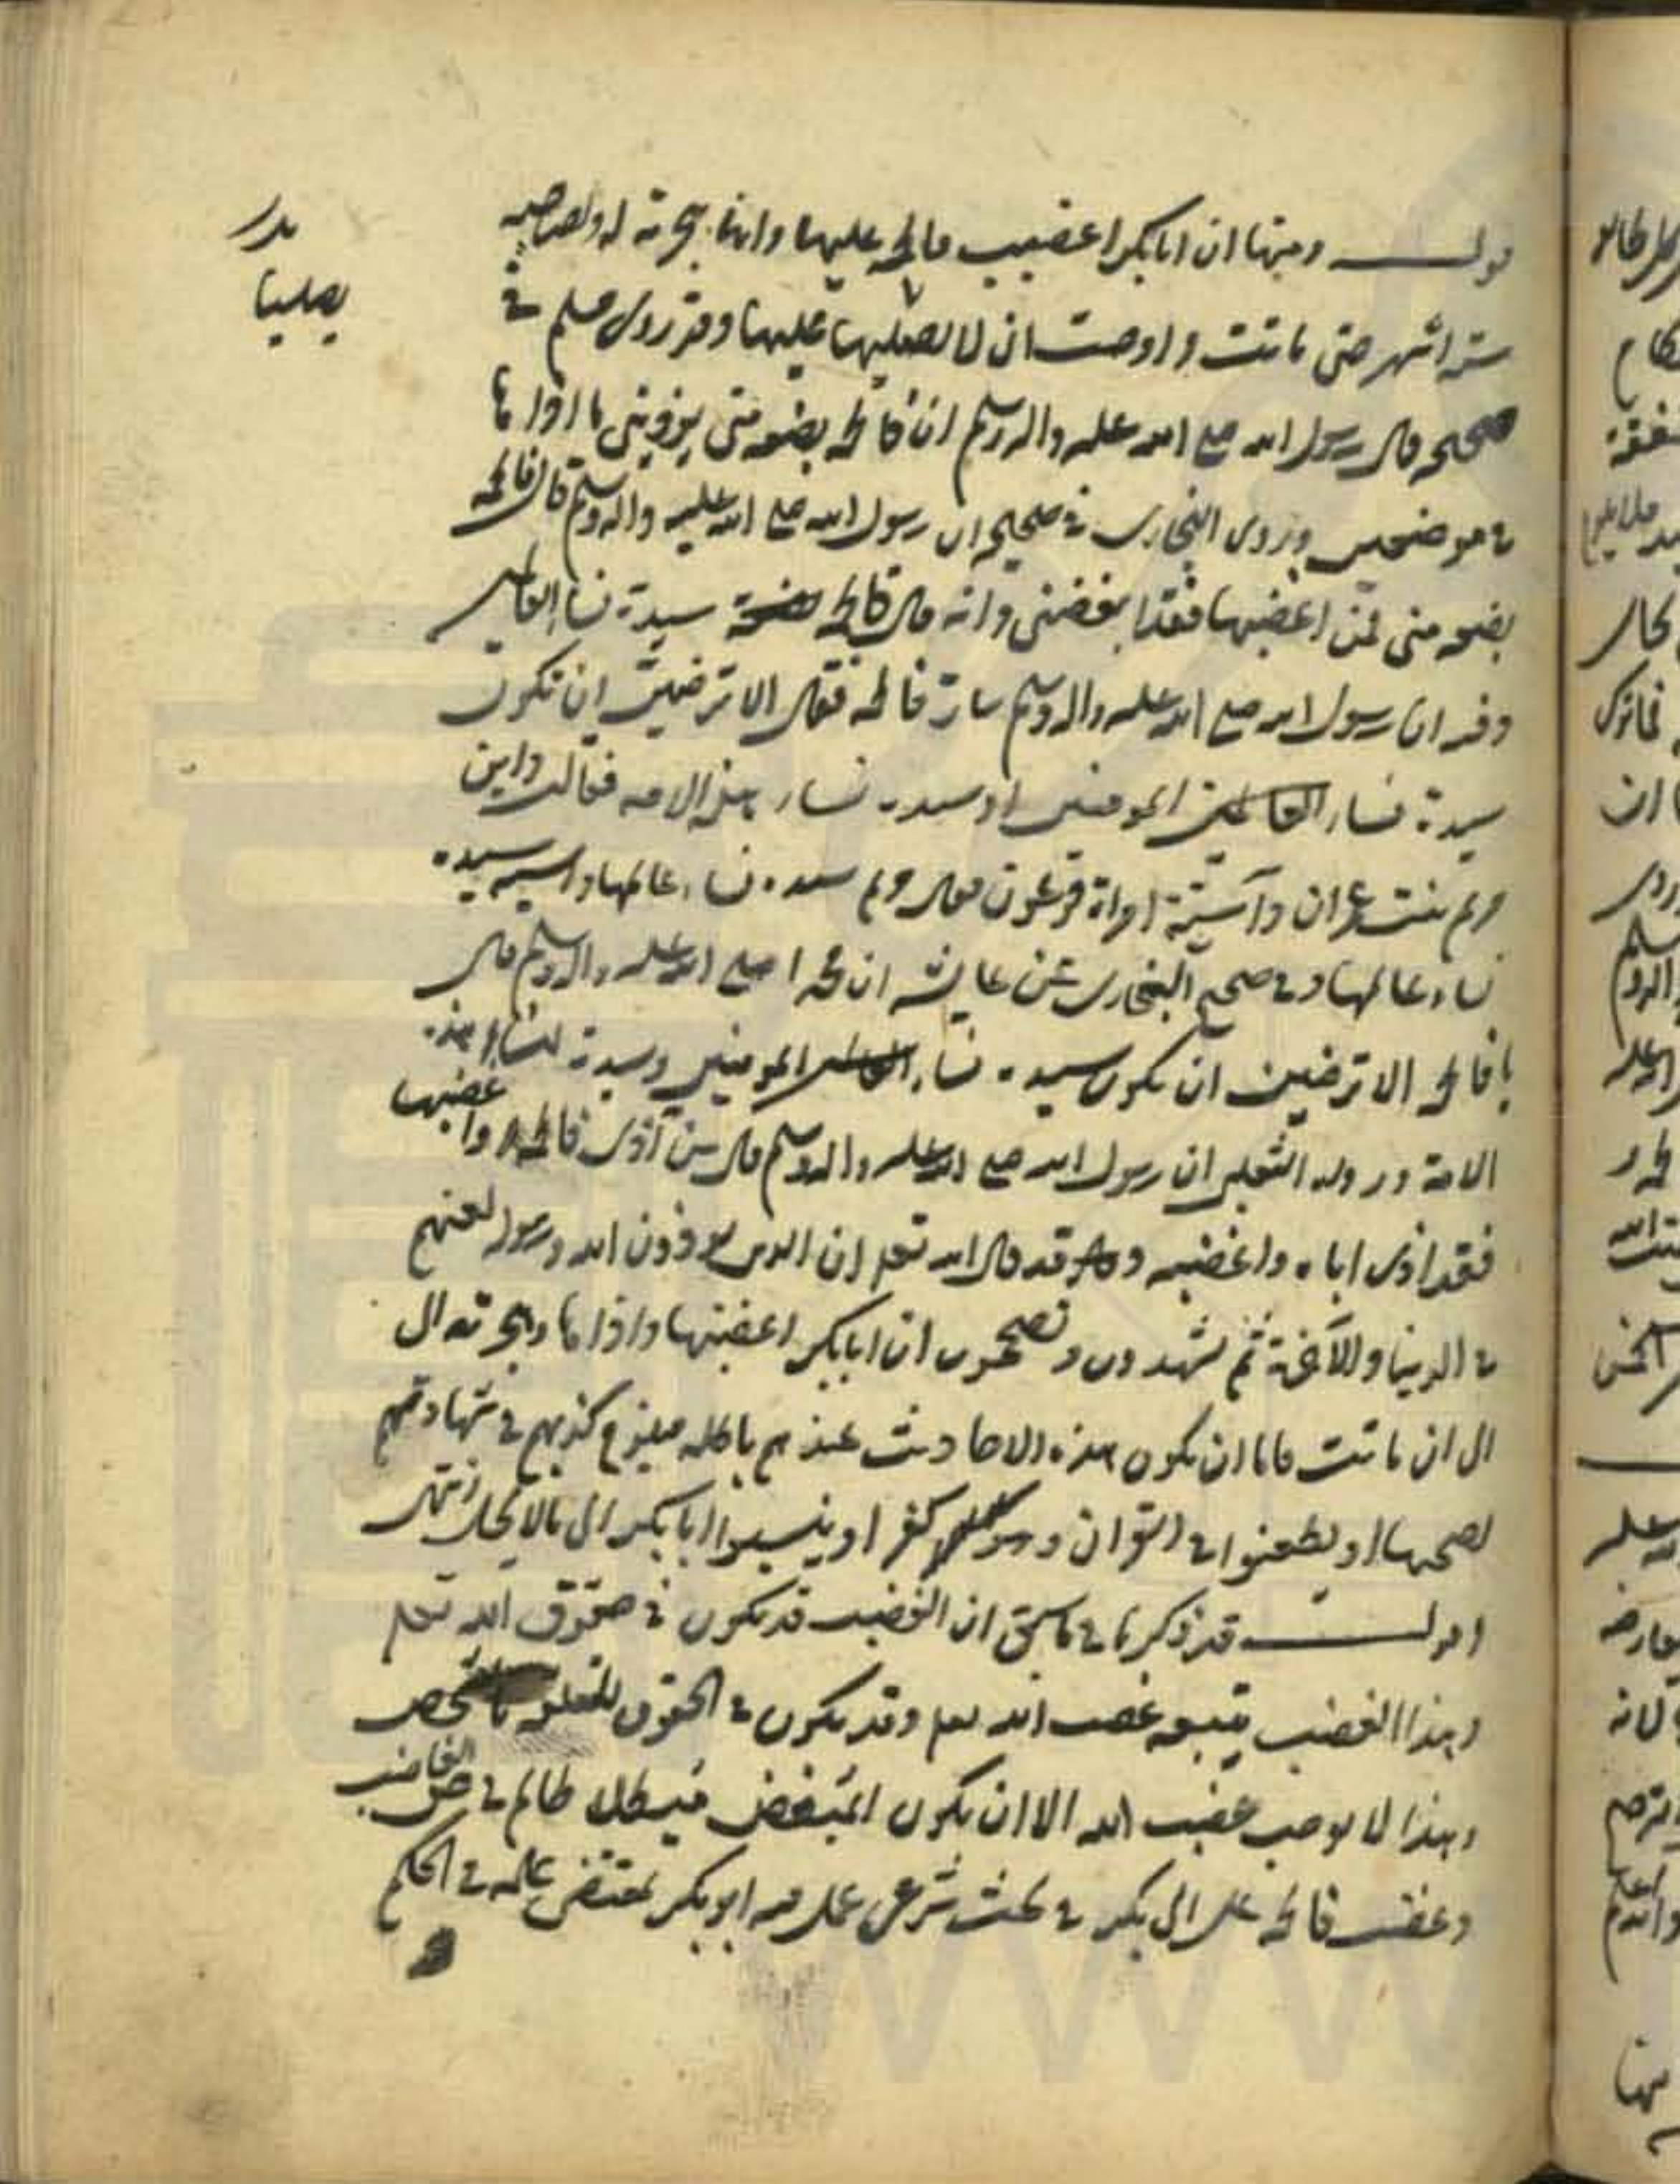 قوله ومنها ان ابابكر اغضب فاطمة عليها وانها هجرته له ولصاحبه
يصليا
ستة اشهر حتى ماتت واوصت ان لا يصليها عليها وقد روى مسلم في
صحيحه قال رسول الله صلع الله عليه واله وسلم ان فاطمة بضعه منى يوذينى ما اذاها
في موضعين وروى البخارى في صحيحه ان رسول الله صلع الله عليه واله وسلم قال فاطمة
بضعه منى فمن اغضبها فقد ابغضنى وانه قال فاطمة سيدة نسا العالمين
وفيه ان رسول الله صلع الله عليه واله وسلم سارّ فاطمة فقال الا ترضين ان تكون
سيدة نساء العالمين المومنين او سيدة نساء هذه الامه فقالت واين
مريم بنت عمران وآسية امراة فرعون فقال مريم سيدة نساء عالمها واسيه سيدة
نساء عالمها وفي صحيح البخارى عن عايشه ان محمدا صلع الله عليه واله وسلم قال
يا فاطمة الا ترضين ان تكون سيدة نساء المومنين وسيدة نساء هذه
الامة وروى الثعلبى ان رسول الله صلع الله عليه واله وسلم قال من آذى فاطمة او اغضبها
فقد اذى اباه واغضبه وقد قال الله تعلى ان الذين يوذون الله ورسوله لعنهم
في الدنيا والآخرة ثم يشهدون ويصححون ان ابابكر اغضبها واذاها وهجرته الى
الى ان ماتت فاما ان يكون هذه الاحاديث عندهم باطله فيلزم كذبهم في شهادتهم
لصحتها او يطعنوا في القران وهو كفر او ينسبوا ابابكر الى ما لا يحل انتهى
اقول قد ذكرنا في ما سبق ان الغضب قد يكون في حقوق الله تعلى
وهذا الغضب يتبعه غضب الله تعلى وقد يكون في الحقوق المتعلق بالشخص
وهذا لا يوجب غضب الله الا ان يكون المبغض مبطلا ظالم في حق الغاضب
وغضب فاطمة على ابى بكر في بحث شرعى عمل فيه ابو بكر بمقتضى علمه في الحكم